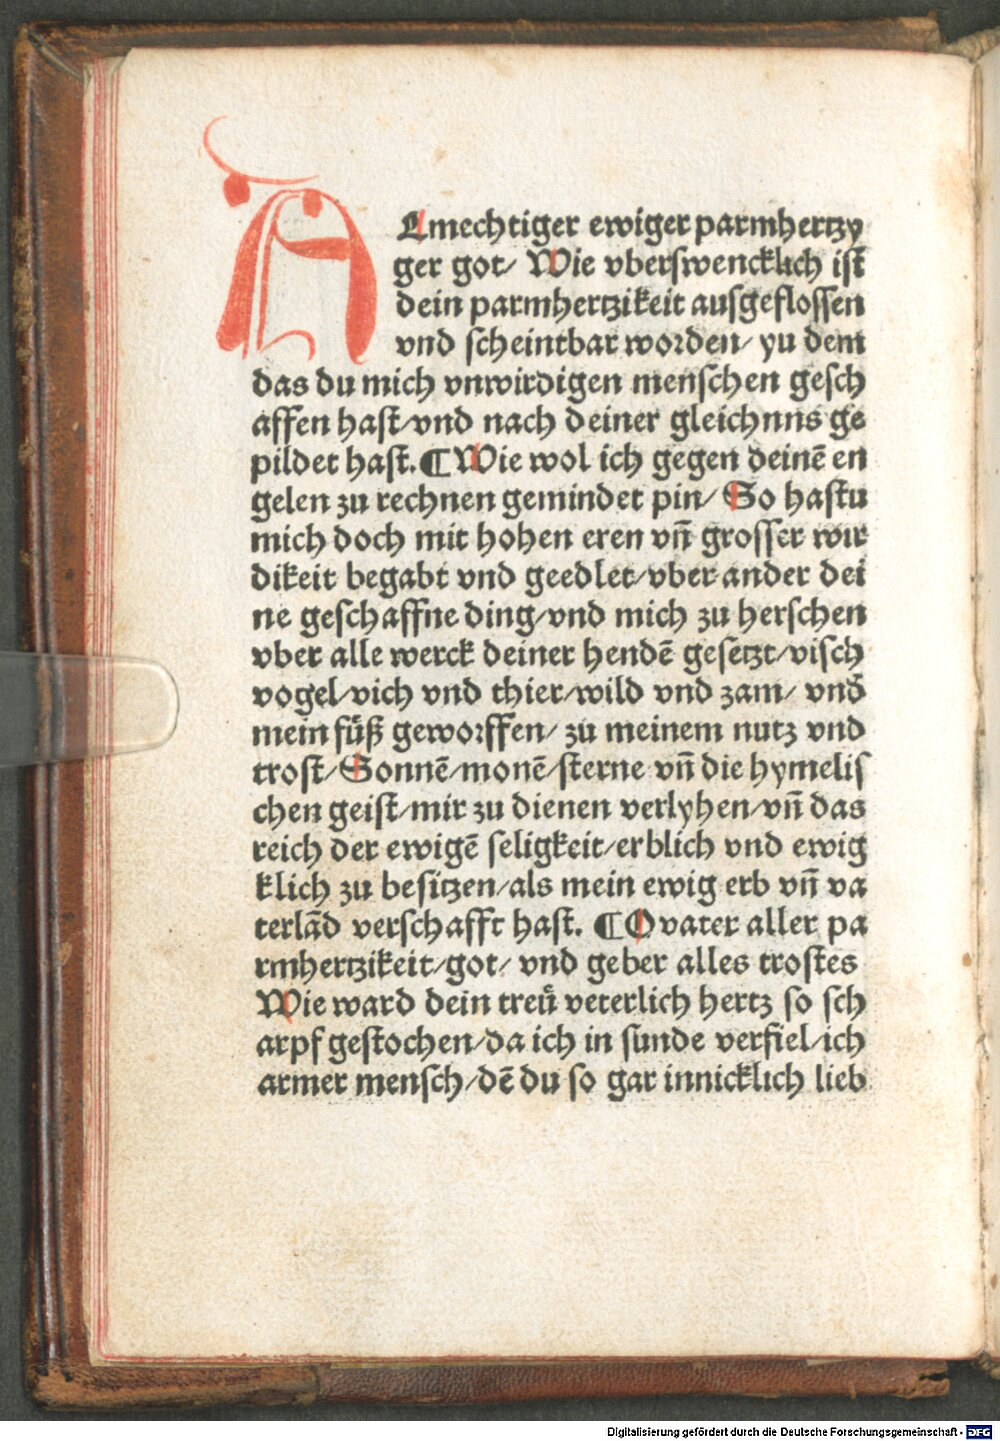 ALmechtiger ewiger parmhertzy
ger got/ Wie vberswencklich ist
dein parmhertzikeit ausgeflossen
vnd scheintbar worden/ yu dem
das du mich vnwirdigen menschen gesch
affen hast/vnd nach deiner gleichnns ge
pildet hast. ¶ Wie wol ich gegen deinē en
gelen zu rechnen gemindet pin/ So hastu
mich doch mit hohen eren vn̄ grosser wir
dikeit begabt vnd geedlet/vber ander dei
ne geschaffne ding/vnd mich zu herschen
vber alle werck deiner hendē gesetzt/visch
vogel/vich vnd thier/wild vnd zam/ vnd̄
mein fuͤß geworffen/ zu meinem nutz vnd
trost/Sonnē/monē/sterne vn̄ die hymelis
chen geist/mir zu dienen verlyhen/vn̄ das
reich der ewigē seligkeit/erblich vnd ewig
klich zu besitzen/als mein ewig erb vn̄ va
terlād verschafft hast. ¶ O vater aller pa
rmhertzikeit/got/ vnd geber alles trostes
Wie ward dein treuͤ veterlich hertz so sch
arpf gestochen/da ich in sunde verfiel/ich
armer mensch/dē du so gar innicklich lieb
Digitalisierung gefördert durch die Deutsche Forschungsgemeinschaft - DFG